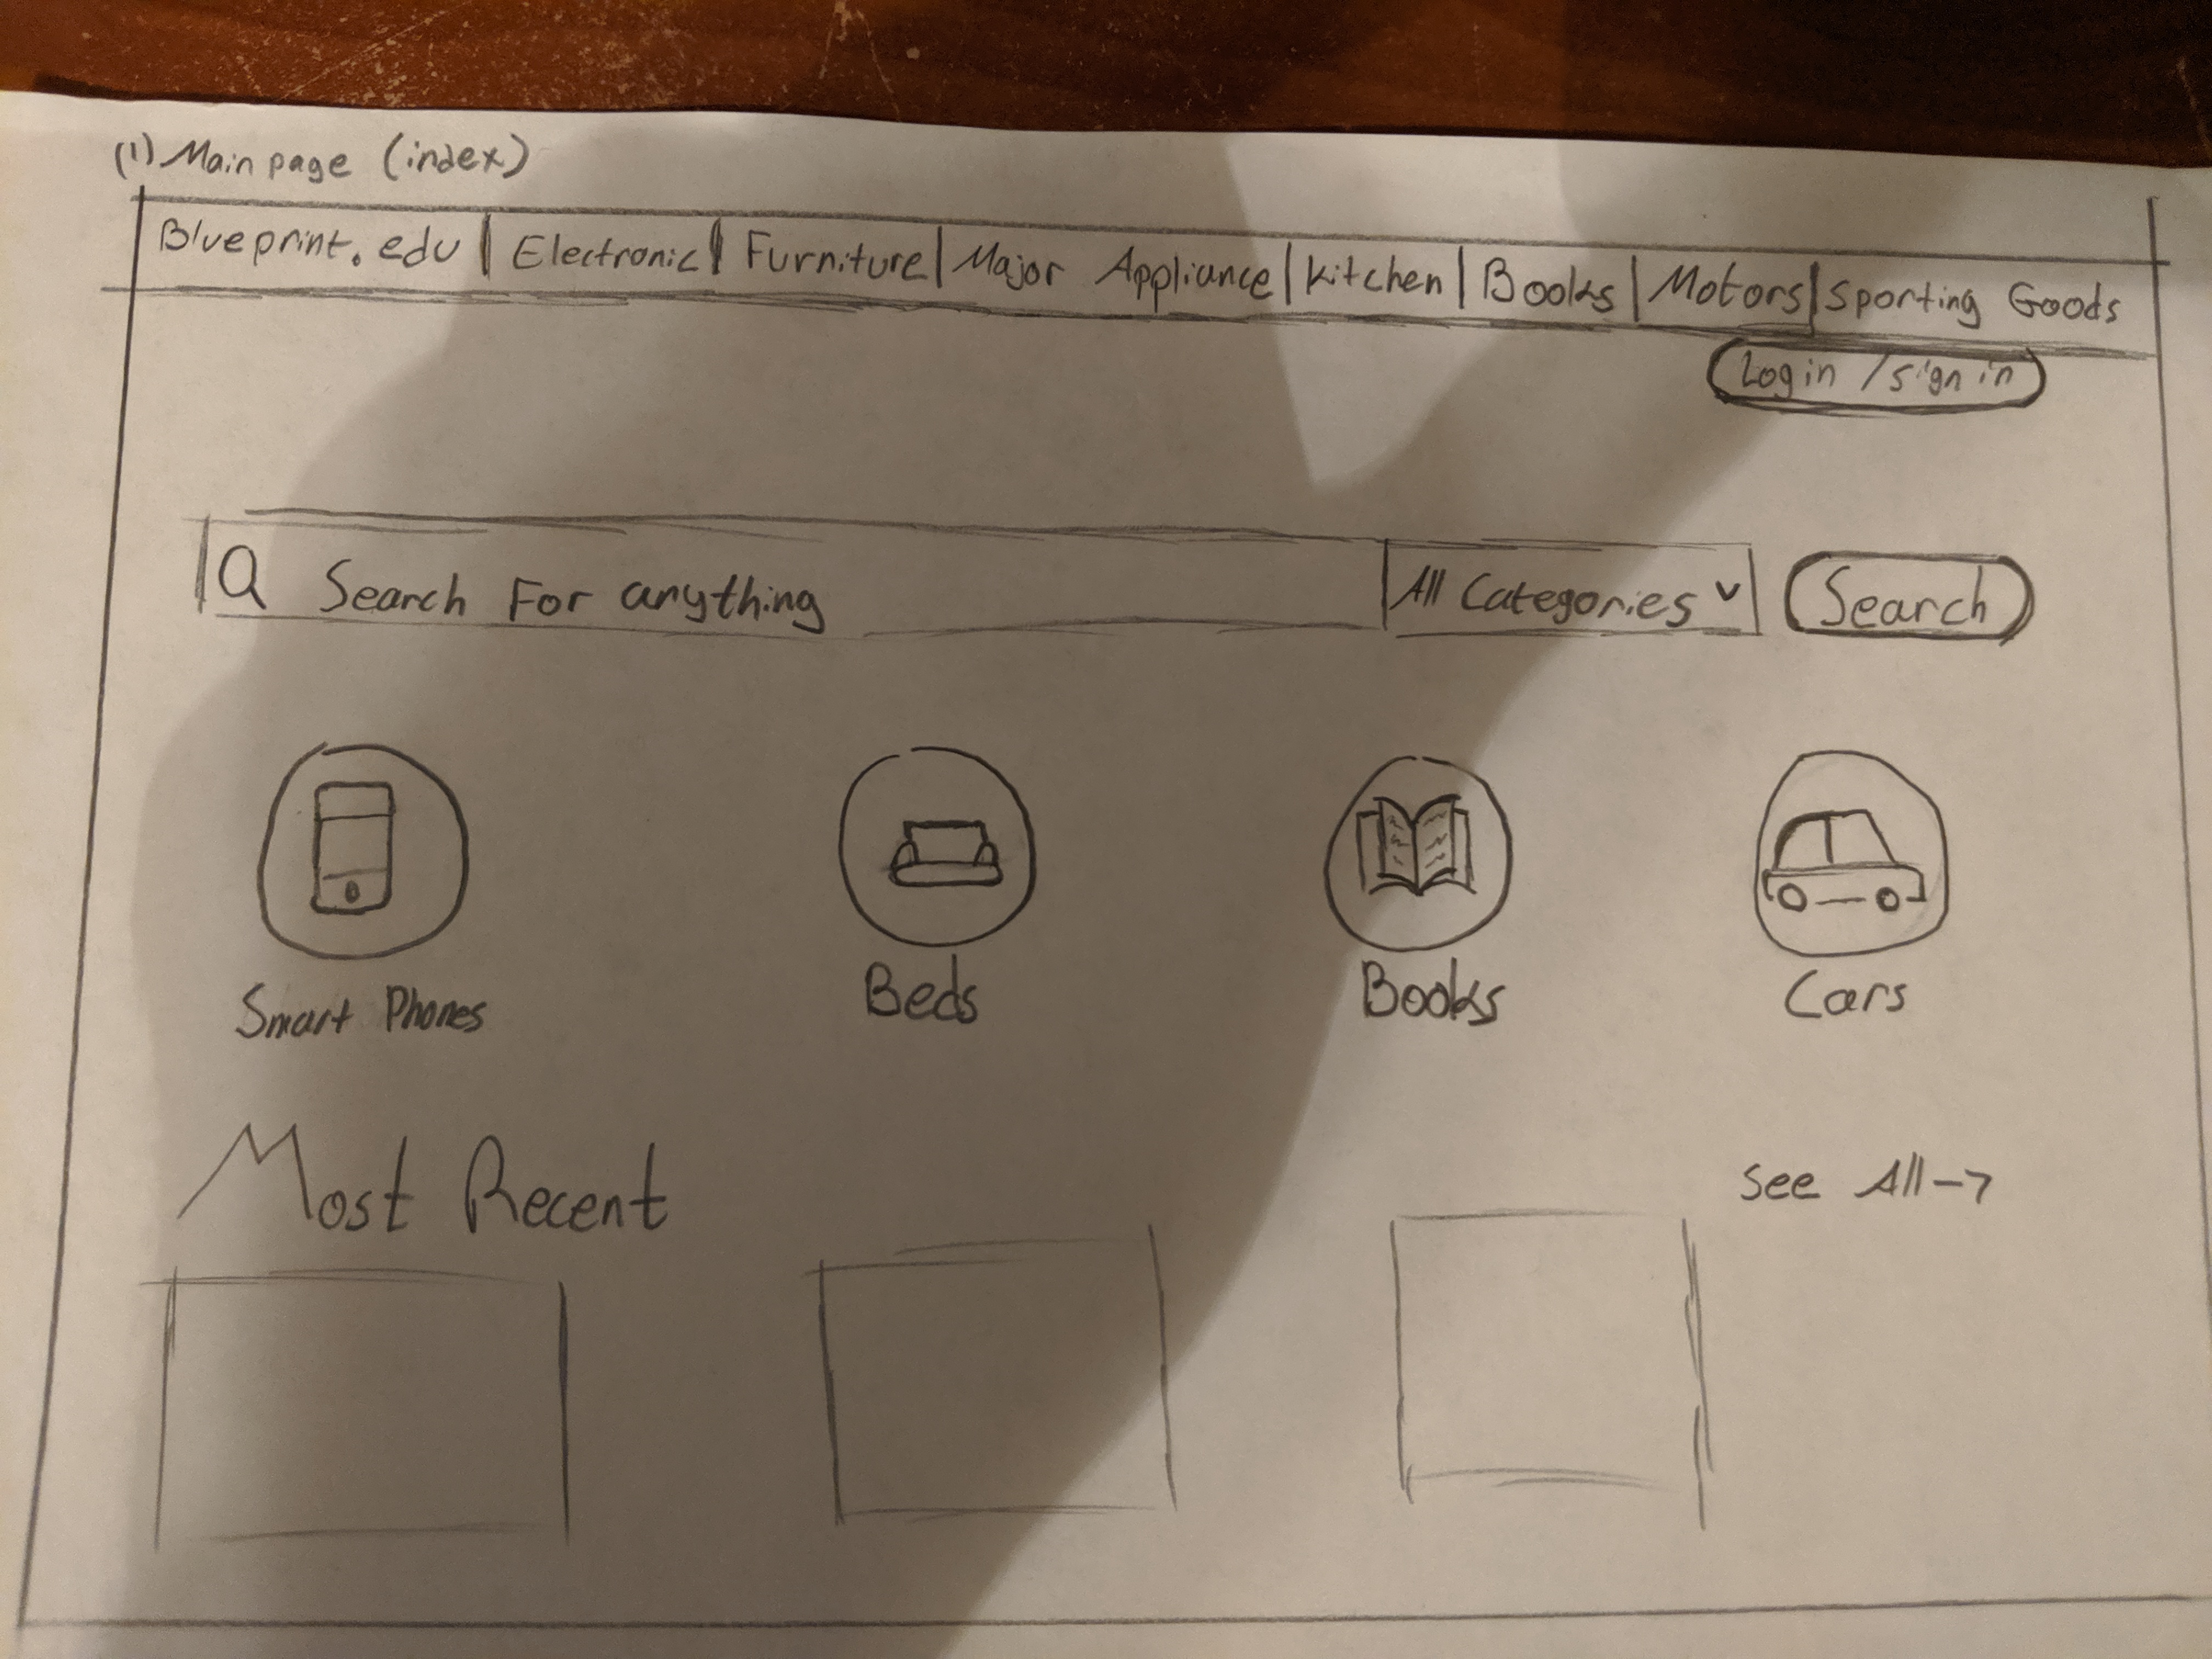 (1) Main page (index)
Blueprint.edu | Electronic | Furniture | Major Appliance | Kitchen | Books | Motors | Sporting Goods
Login / sign in
Search For anything All Categories Search
Smart Phones Beds Books Cars
Most Recent See All →